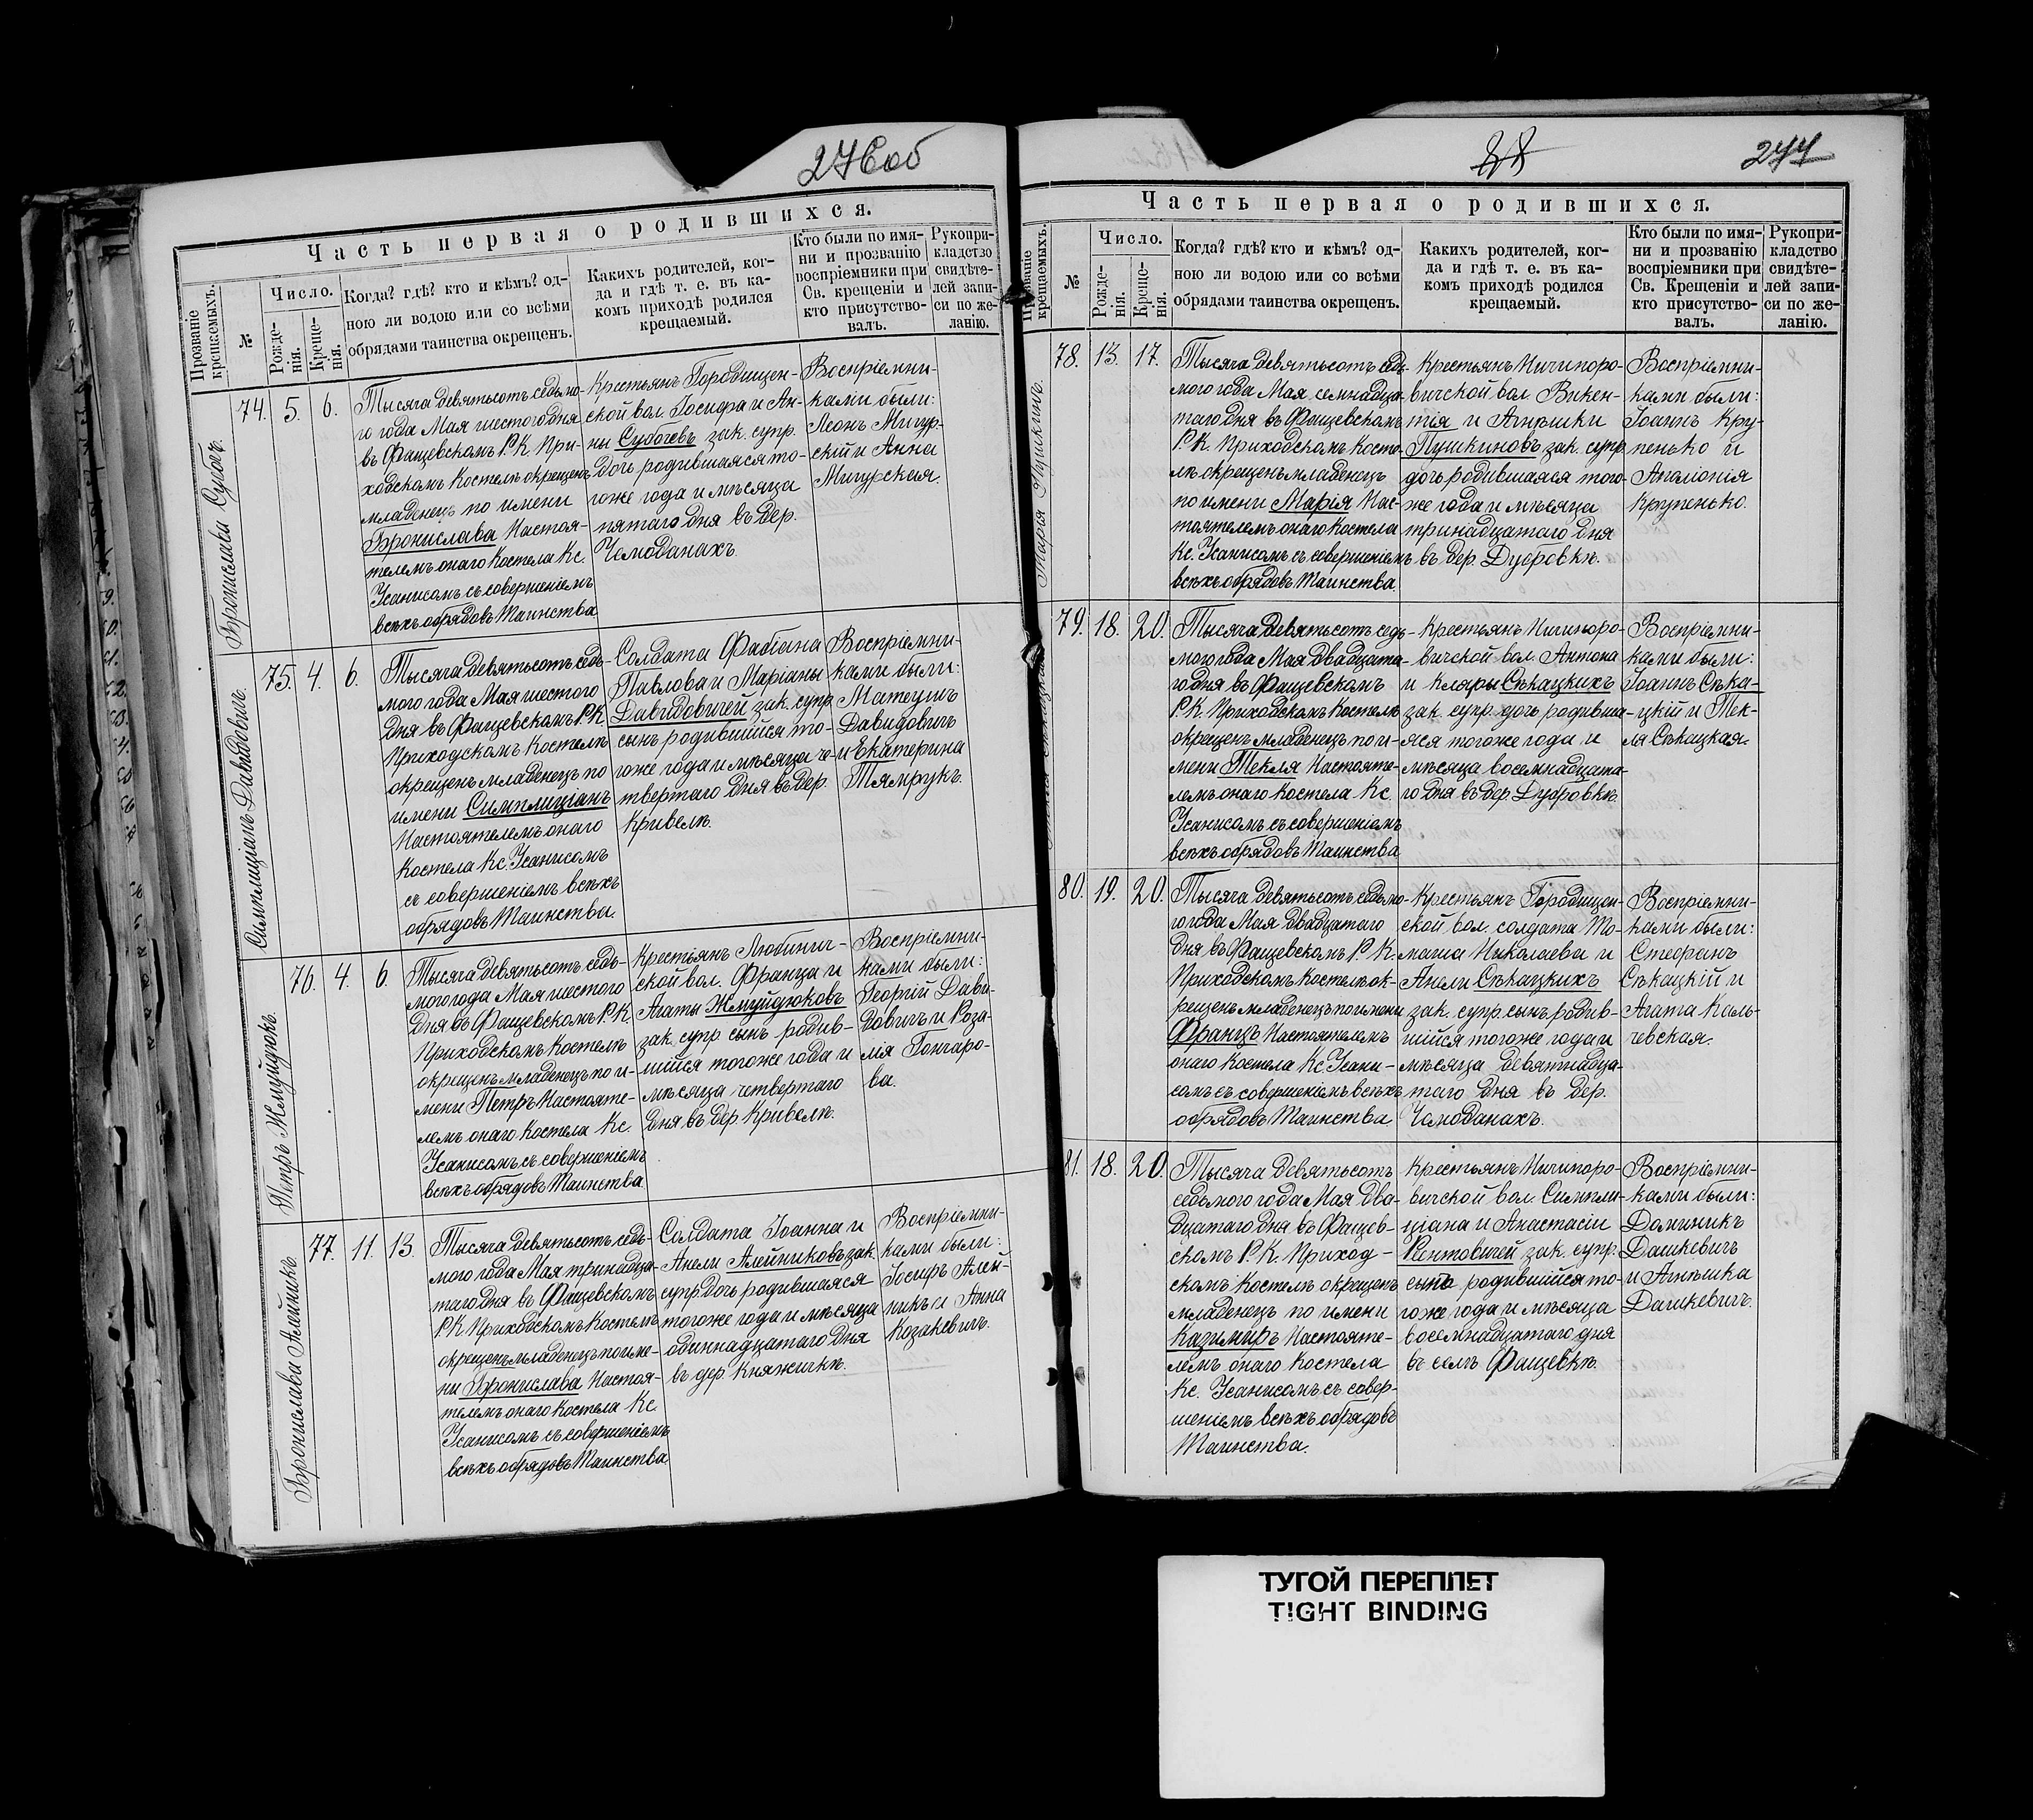 276 об
Часть первая о родившихся.
Прозваніе крещаемыхъ.
№
Число.
Рожде-
нія.
Креще-
нія.
Когда? гдѣ? кто и кѣмъ? од-
ною ли водою или со всѣми
обрядами таинства окрещенъ.
Какихъ родителей, ког-
да и гдѣ т. е. въ ка-
комъ приходѣ родился
крещаемый.
Кто были по имя-
ни и прозванію
воспріемники при
Св. крещеніи и
кто присутство-
валъ.
Рукопри-
кладство
свидѣте-
лей запи-
си по же-
ланію.
Бронислава Субочъ.
74. 5. 6.
Тысяча девятьсотъ седьмо-
го года Мая шестого дня
въ Фащевскомъ Р.К. При-
ходскомъ Костелѣ окрещенъ
младенецъ по имени
Бронислава Настоя-
телемъ онаго Костела Кс.
Усанисомъ съ совершеніемъ
всѣхъ обрядовъ Таинства
Крестьянъ Городищен-
ской вол. Іосифа и Ан-
ны Субочевъ зак. супр.
дочь родившаяся то-
гоже года и мѣсяца
пятаго дня въ дер.
Чемоданахъ.
Воспріемни-
ками были:
Леонъ Мигур-
скій и Анна
Мигурская.
Симплиціанъ Давидовичъ.
75. 4. 6.
Тысяча девятьсотъ седь-
мого года Мая шестого
дня въ Фащевскомъ Р.К.
Приходскомъ Костелѣ
окрещенъ младенецъ по
имени Симплиціанъ
Настоятелемъ онаго
Костела Кс. Усанисомъ
съ совершеніемъ всѣхъ
обрядовъ Таинства.
Солдата Фабіана
Павлова и Маріаны
Давидовичей зак. супр.
сынъ родившійся то-
гоже года и мѣсяца че-
твертаго дня въ дер.
Кривелѣ.
Воспріемни-
ками были:
Матеушъ
Давидовичъ
и Екатерина
Тямрукъ.
Петръ Жмуйдюкъ.
76. 4. 6.
Тысяча девятьсотъ седь-
мого года Мая шестого
дня въ Фащевскомъ Р.К.
Приходскомъ Костелѣ
окрещенъ младенецъ по и-
мени Петръ Настояте-
лемъ онаго Костела Кс.
Усанисомъ съ совершеніемъ
всѣхъ обрядовъ Таинства
Крестьянъ Любинич-
ской вол. Франца и
Агаты Жмуйдюковъ
зак. супр. сынъ родив-
шійся тогоже года и
мѣсяца четвертаго
дня въ дер. Кривелѣ.
Воспріемни-
ками были:
Георгій Дави-
довичъ и Роза-
лія Гончаро-
ва.
Бронислава Алейникъ.
77. 11. 13.
Тысяча девятьсотъ седь-
мого года Мая тринадца-
таго дня въ Фащевскомъ
Р.К. Приходскомъ Костелѣ
окрещенъ младенецъ по име-
ни Бронислава Настоя-
телемъ онаго Костела Кс.
Усанисомъ съ совершеніемъ
всѣхъ обрядовъ Таинства
Солдата Іоанна и
Анели Алейниковъ зак.
супр. дочь родившаяся
тогоже года и мѣсяца
одиннадцатаго дня
въ дер. Княжичкѣ.
Воспріемни-
ками были:
Іосифъ Алей-
никъ и Анна
Козакевичъ.
88
277
Часть первая о родившихся.
Прозваніе
крещаемыхъ.
№
Число.
Рожде-
нія.
Креще-
нія.
Когда? гдѣ? кто и кѣмъ? од-
ною ли водою или со всѣми
обрядами таинства окрещенъ.
Какихъ родителей, ког-
да и гдѣ т. е. въ ка-
комъ приходѣ родился
крещаемый.
Кто были по имя-
ни и прозванію
воспріемники при
Св. Крещеніи и
кто присутство-
валъ.
Рукопри-
кладство
свидѣте-
лей запи-
си по же-
ланію.
Марія Пушкинъ.
78. 13. 17.
Тысяча девятьсотъ седь-
мого года Мая семнадца-
таго дня въ Фащевскомъ
Р.К. Приходскомъ Косте-
лѣ окрещенъ младенецъ
по имени Марія Нас-
тоятелемъ онаго Костела
Кс. Усанисомъ съ совершеніемъ
всѣхъ обрядовъ Таинства.
Крестьянъ Ничипоро-
вичской вол. Викен-
тія и Агнѣшки
Пушкиновъ зак. супр.
дочь родившаяся того-
же года и мѣсяца
тринадцатаго дня
въ дер. Дубровкѣ.
Воспріемни-
ками были:
Іоаннъ Кру-
пенько и
Апглонія
Крупенько.
79. 18. 20.
Тысяча девятьсотъ седь-
мого года Мая двадцата-
го дня въ Фащевскомъ
Р.К. Приходскомъ Костелѣ
окрещенъ младенецъ по и-
мени Текля Настояте-
лемъ онаго Костела Кс.
Усанисомъ съ совершеніемъ
всѣхъ обрядовъ Таинства
Крестьянъ Ничипоро-
вичской вол. Антона
и Кляры Сѣкацкихъ
зак. супр. дочь родивша-
яся тогоже года и
мѣсяца восемнадцата-
го дня въ дер. Дубровкѣ.
Воспріемни-
ками были:
Іоаннъ Сѣка-
цкій и Тек-
ля Сѣкацкая.
80. 19. 20.
Тысяча девятьсотъ седьмо-
го года Мая двадцатаго
дня въ Фащевскомъ Р.К.
Приходскомъ Костелѣ ок-
рещенъ младенецъ по имени
Францъ Настоятелемъ
онаго Костела Кс. Усани-
сомъ съ совершеніемъ всѣхъ
обрядовъ Таинства
Крестьянъ Городищен-
ской вол. солдата То-
маша Николаева и
Анели Сѣкацкихъ
зак. супр. сынъ родив-
шійся тогоже года и
мѣсяца девятнадца-
таго дня въ дер.
Чемоданахъ.
Воспріемни-
ками были:
Стефанъ
Сѣкацкій и
Агата Каль-
чевская.
81. 18. 20.
Тысяча девятьсотъ
седьмого года Мая два-
дцатаго дня въ Фащев-
скомъ Р.К. Приход-
скомъ Костелѣ окрещенъ
младенецъ по имени
Казимиръ Настояте-
лемъ онаго Костела
Кс. Усанисомъ съ совер-
шеніемъ всѣхъ обрядовъ
Таинства.
Крестьянъ Ничипоро-
вичской вол. Симпли-
ціана и Анастасіи
Рентовичей зак. супр.
сынъ родившійся то-
гоже года и мѣсяца
восемнадцатаго дня
въ селѣ Фащевкѣ.
Воспріемни-
ками были:
Доминикъ
Дашкевичъ
и Агнѣшка
Дашкевичъ.
ТУГОЙ ПЕРЕПЛЕТ
TIGHT BINDING